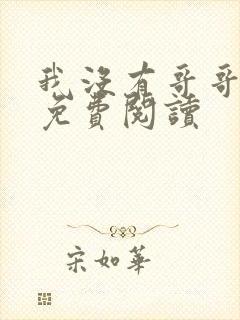 我沒有哥哥
免費閱讀
宋如華